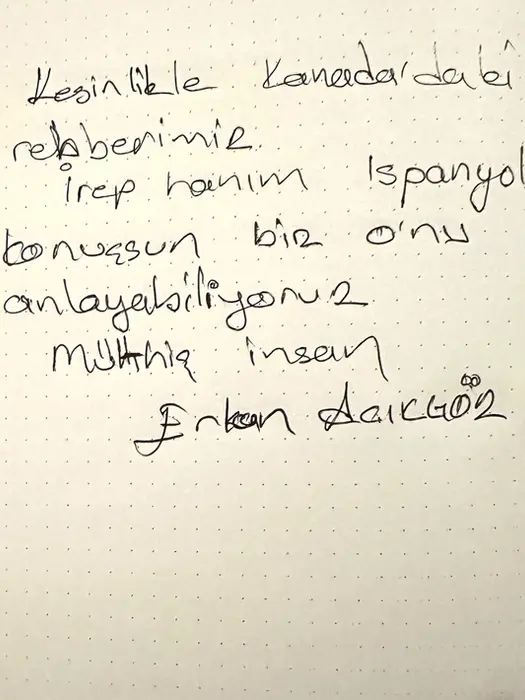 Kesinlikle Kanada'daki
rehberimiz
İrep hanım Ispanyol
konuşsun biz o'nu
anlayabiliyoruz
Müthiş insan
Erkan AÇIKGÖZ